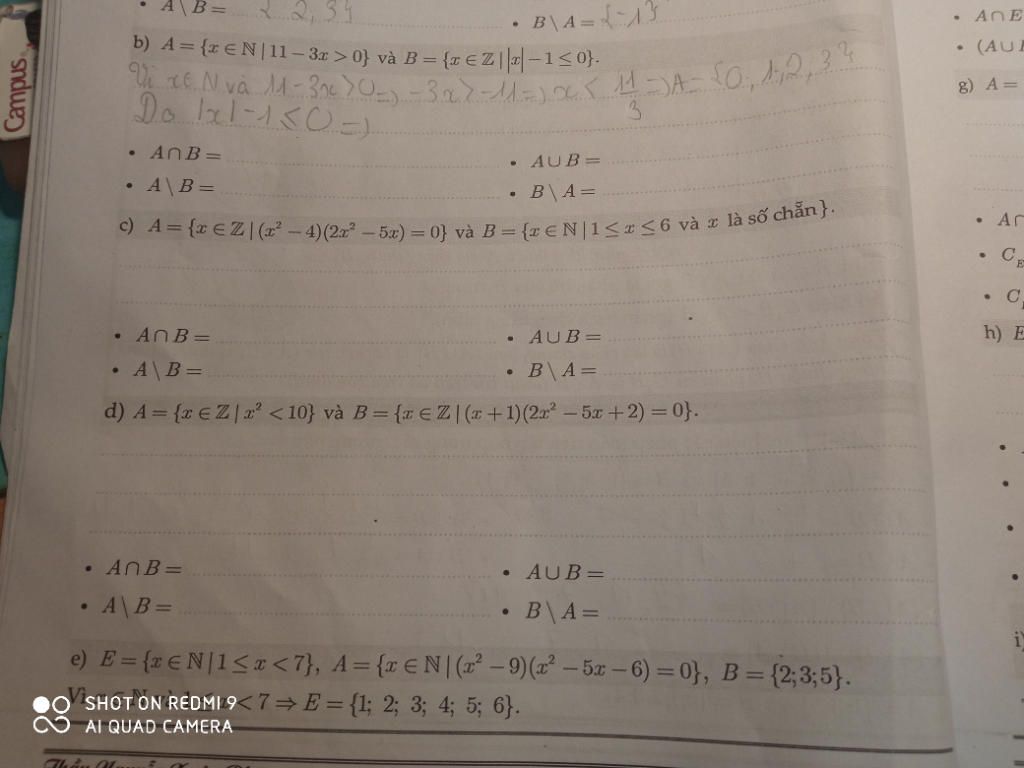 Campus
• A \ B = { 2, 3}
• B \ A = {-1}
b) A = {x ∈ ℕ | 11 − 3x > 0} và B = {x ∈ ℤ | |x| − 1 ≤ 0}.
Vì x ∈ N và 11 - 3x > 0 => -3x > -11 => x < 11/3 => A = {0; 1, 2, 3}
Do |x| - 1 ≤ 0 =>
• A ∩ B =
• A ∪ B =
• A \ B =
• B \ A =
c) A = {x ∈ ℤ | (x² − 4)(2x² − 5x) = 0} và B = {x ∈ ℕ | 1 ≤ x ≤ 6 và x là số chẵn}.
• A ∩ B =
• A ∪ B =
• A \ B =
• B \ A =
d) A = {x ∈ ℤ | x² < 10} và B = {x ∈ ℤ | (x + 1)(2x² − 5x + 2) = 0}.
• A ∩ B =
• A ∪ B =
• A \ B =
• B \ A =
e) E = {x ∈ ℕ | 1 ≤ x < 7}, A = {x ∈ ℕ | (x² − 9)(x² − 5x − 6) = 0}, B = {2; 3; 5}.
Vì < 7 ⇒ E = {1; 2; 3; 4; 5; 6}.
• A ∩ E
• (A ∪
g) A =
• A ∩
• C
• C
h) E
i)
SHOT ON REDMI 9
AI QUAD CAMERA